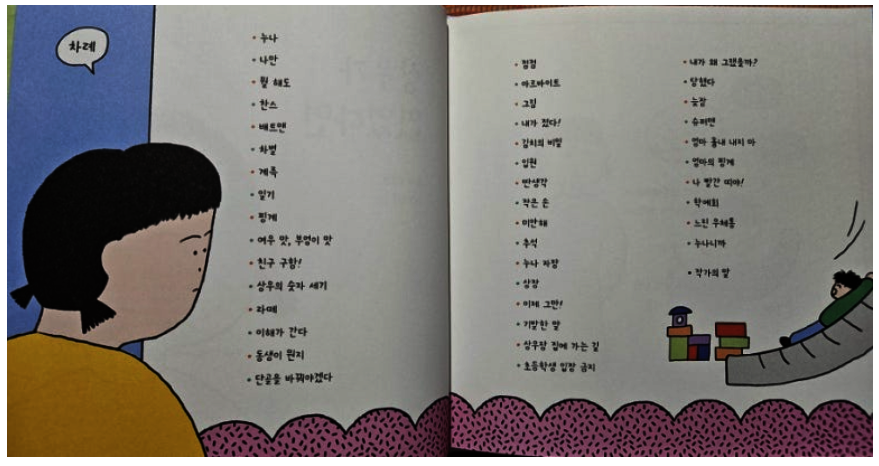 차례
• 누나
• 나만
• 뭘 해도
• 한스
• 배트맨
• 차별
• 계족
• 일기
• 핑계
• 여우 맛, 부엉이 맛
• 친구 구함!
• 상우의 숫자 세기
• 라떼
• 이해가 간다
• 동생이 뭔지
• 단골을 바꿔야겠다
• 점점
• 아르바이트
• 그림
• 내가 졌다!
• 김치의 비밀
• 입원
• 딴생각
• 작은 손
• 미안해
• 추석
• 누나 짜장
• 상장
• 이제 그만!
• 기발한 말
• 상우랑 집에 가는 길
• 초등학생 입장 금지
• 내가 왜 그랬을까?
• 당했다
• 늦잠
• 슈퍼맨
• 엄마 흉내 내지 마
• 엄마의 핑계
• 나 빨간 띠야!
• 학예회
• 느린 우체통
• 누나니까
• 작가의 말